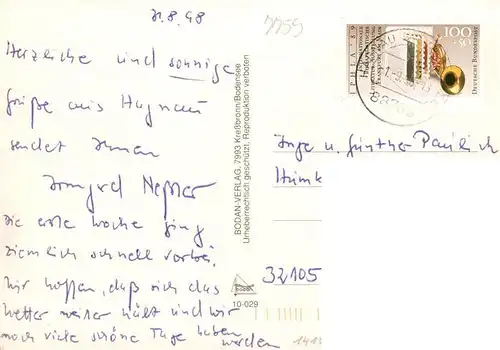 31.8.98
Herzliche und sonnige
Grüße aus Hagnau
sendet Ihnen
Irmgard
Die erste Woche ging
ziemlich schnell vorbei.
Wir hoffen, daß sich das
Wetter weiter hält und wir
noch viele schöne Tage haben
werden
7759
BODAN-VERLAG, 7993 Kreßbronn/Bodensee
Urheberrechtlich geschützt, Reproduktion verboten
10-029
IPHLA '89
100
+50
DEUTSCHE BUNDESPOST
Inge u. Günther Paulich
32105